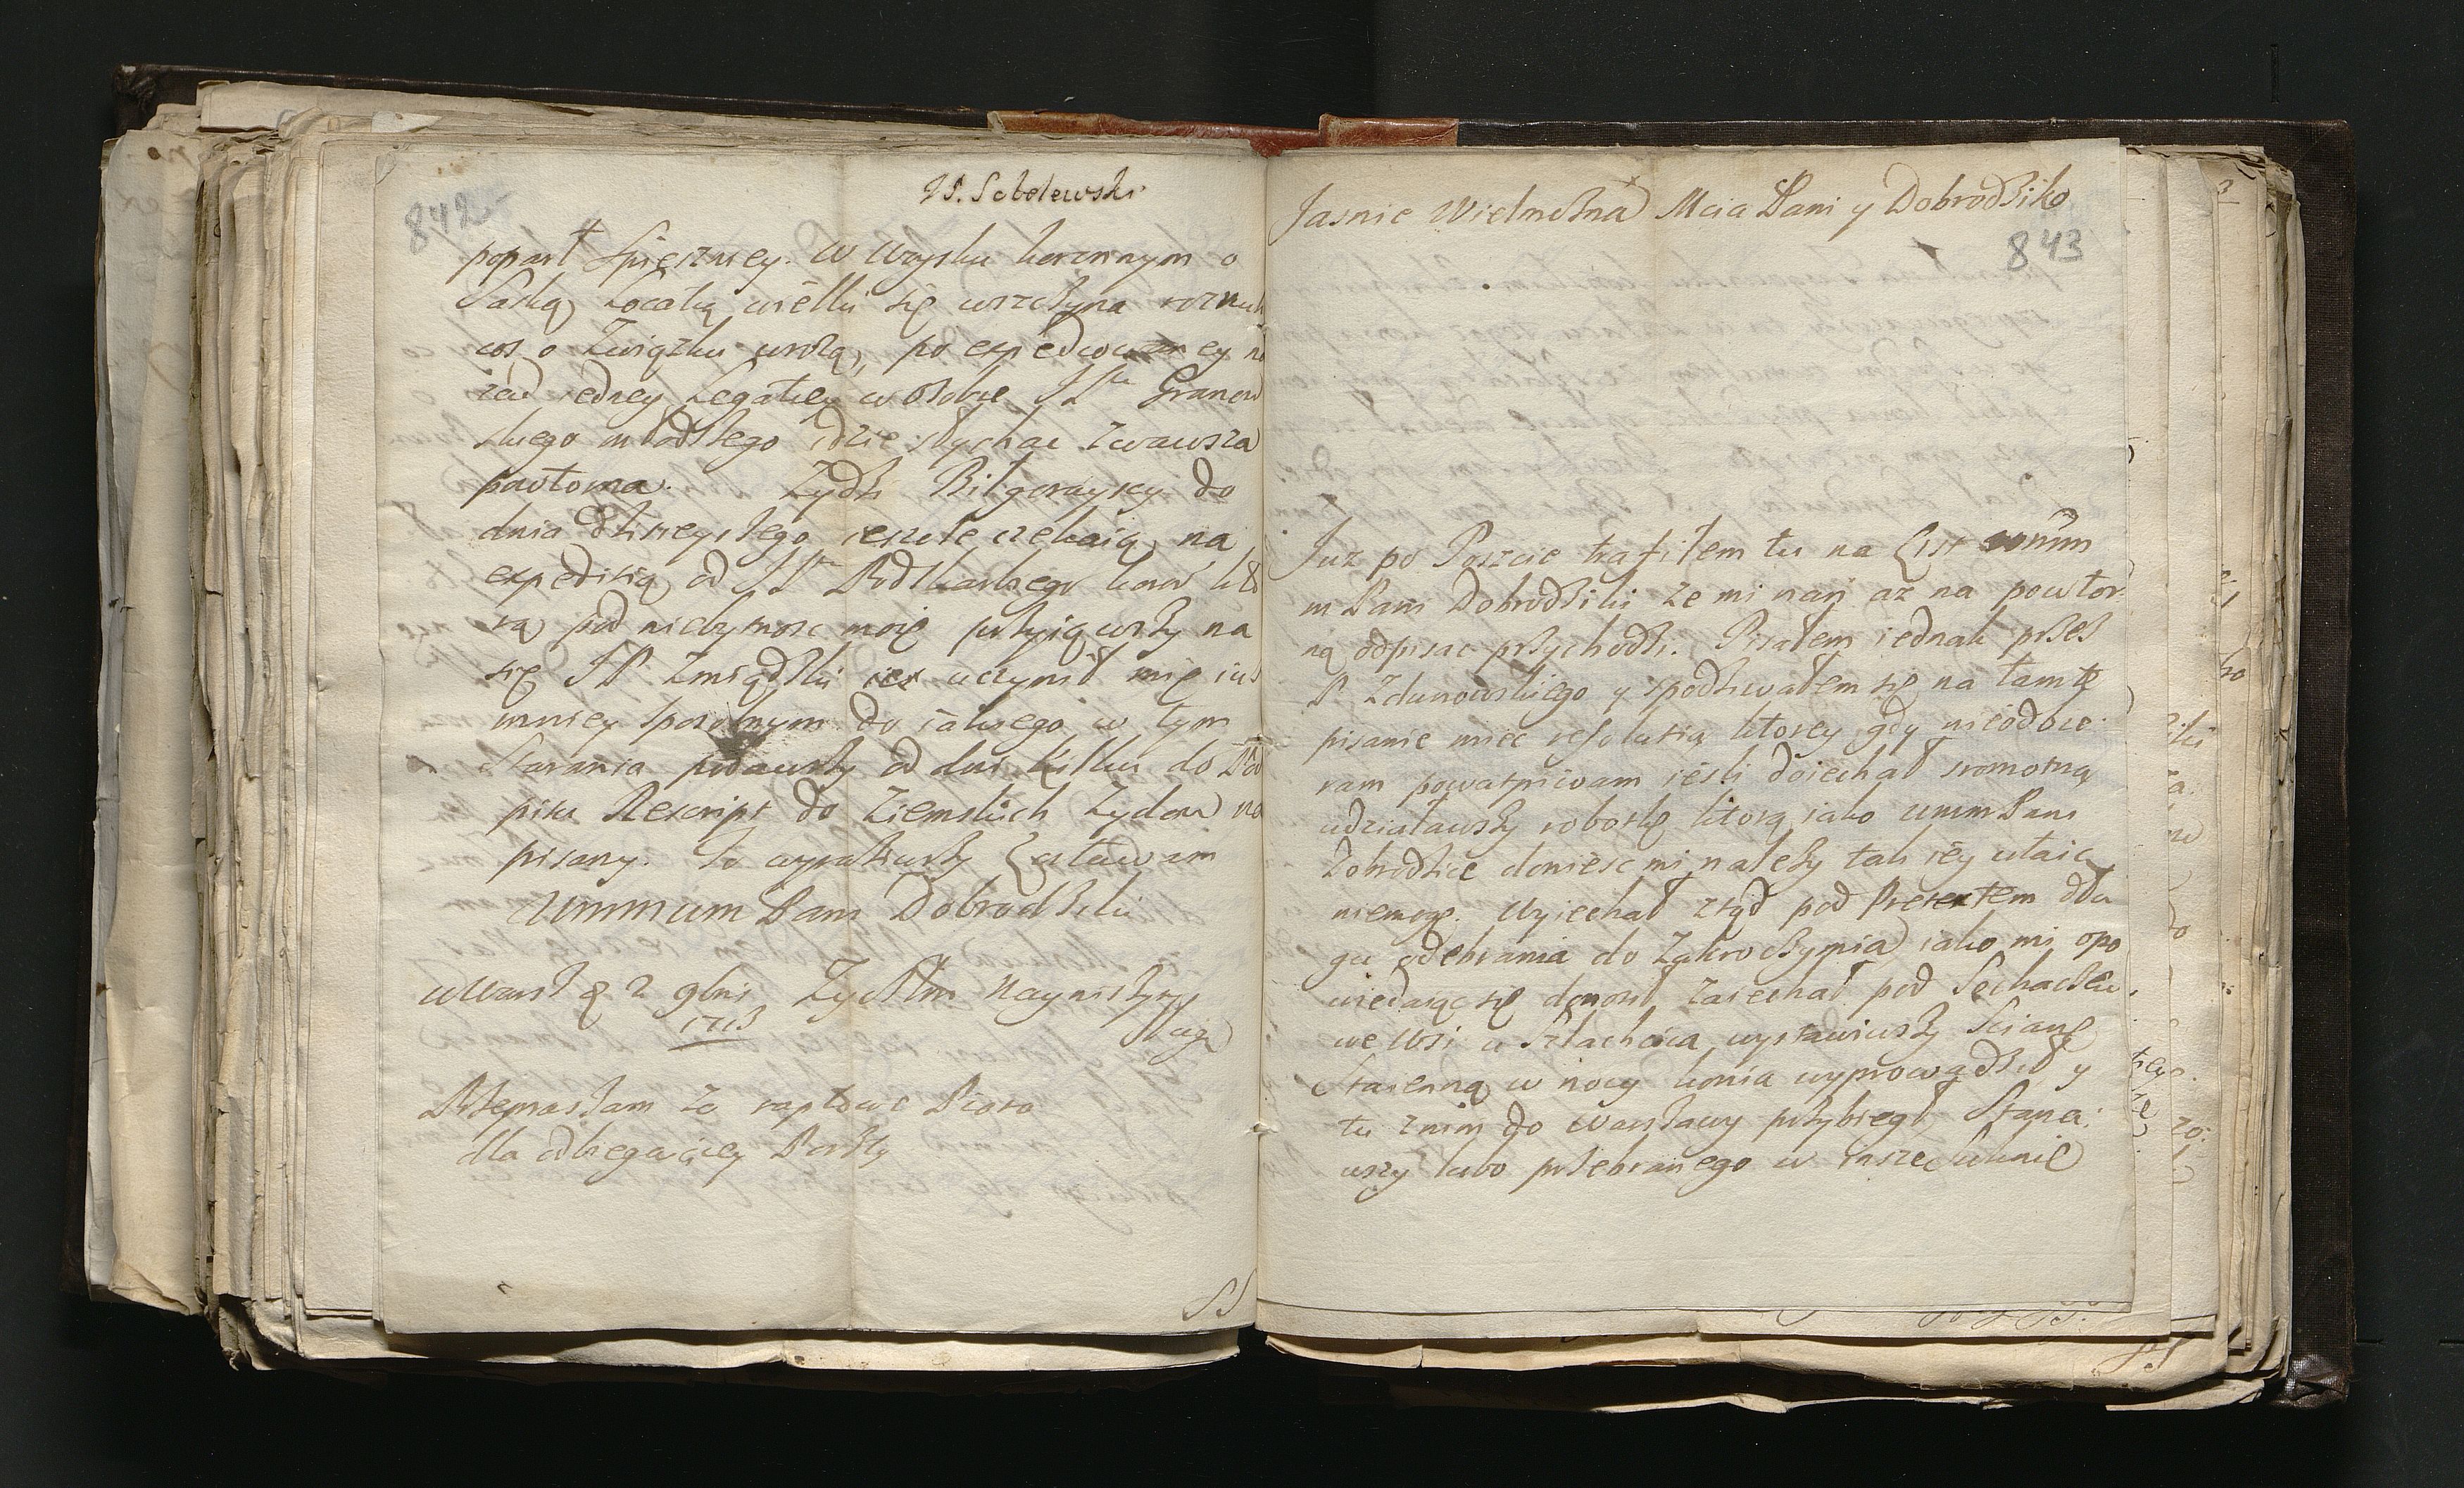 842
JP. Sobolewski
poparł spieszniey. W Woysku koronnym o
Saską wielki się wszczyna
cos o Związku wrożą, po expedyowaney
iedney Legatiey w osobie JPa Granow
skiego młodszego idzie słychac zwawsza
powtorna. Zydzi Biłgorayscy do
dnia dzisieyszego ieszcze czekaią na
expedisią od JPa Podskarbiego kor
rą pod niebytnosc moię przyiąwszy na
się JP Zmigdzki uczynił mię iusz
mniey sposobnym do iakiego w tym
Starania podawszy od dni kilku do Pod
pisu Rescript do Ziemskich Zydow na
pisany. To wyraziwszy Zostawam
Ummmm Pani Dobrodziki
w Warsz d 2 9bris Zyczłm Nayniższym
1713 sługą
Przepraszam za raptowe Pioro
dla odbiegaiącey Poszty
Jasnie Wielmożna Mcia Pani y Dobrodziko
843
Juz po Poszcie trafiłem tu na List
m Pani Dobrodziki ze mi nań az na powtor
ną odpisac przychodzi. Pisałem iednak przez
P Zdunowskiego y spodziwałem się na tamtę
pisanie miec resolutią ktorey gdy nieodbie
ram powatpiwam iesli doiechał sromotną
udziaławszy robotę ktorą iako Ummm Pani
Dobrodzice doniesc mi należy tak iey utaic
niemogę. Wyiechał ztąd pod Pretextem dłu
gu odebrania do Zakroczymia iako mi opo
wiedaiąc się donosił, zaiechał pod Sochaczew
we Wsi u Szlachcica wystawiwszy Scianę
Staienną w nocy konia wyprowadził y
tu znim do Warszawy przybiegł Stana
wszy lubo przebranego w insze Suknie